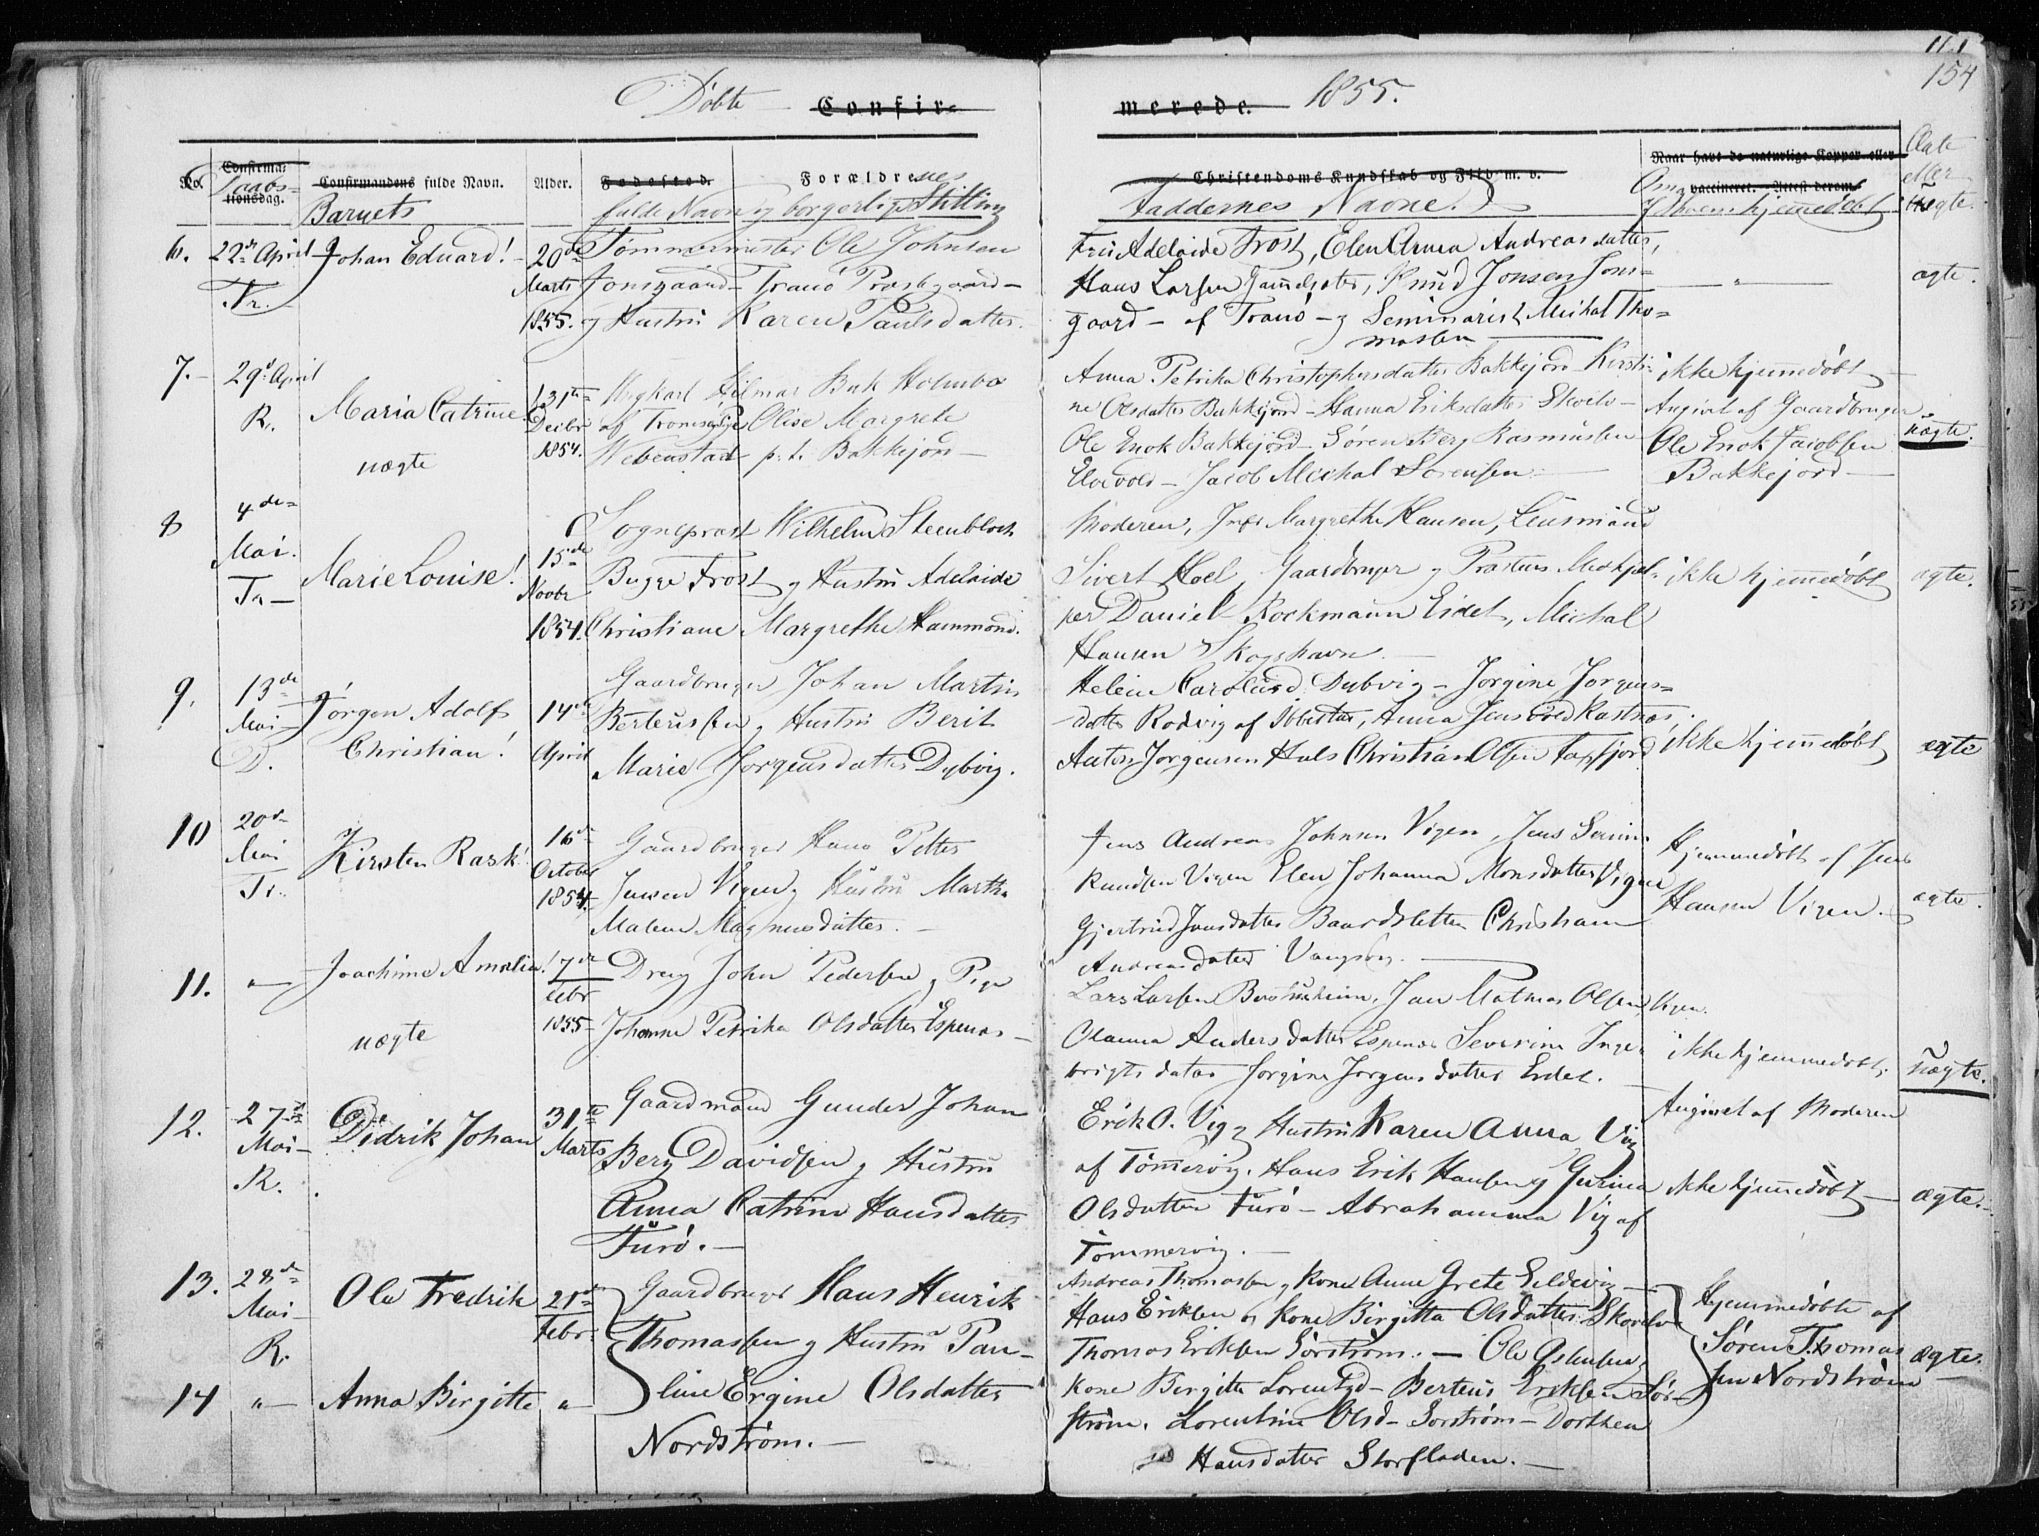 161
154
Döbte Confir-
merede. 1855.
No. Confirma- Daabs- tionsdag. Confirmandens fulde Navn. Barnets Alder. Födested. Forældrenes
fulde Navn og borgerlige Stilling
Christendoms Kundskab og Flid m. v.
Faddernes Navne.
Naar havt de naturlige Kopper eller
Om vaccineret. Attest derom.
hjemmedöbt
eller
Uægte.
6. 22de April Johan Eduard! 20de Tømmermester Ole Johnsen
Tr. Marts Jonsgaard - Tranö Præstgaard -
1855. og Hustru Karen Paulsdatter.
Fru Adelaide Frost, Elen Anna Andreasdatter,
Hans Larsen Gammelsæter, Knud Jonsen Jons=
gaard - af Tranö - og Seminarist Michal Tho=
massen
ægte.
7. 29de April
R. Maria Catrine 31te Hilmar Bak Holmbo
uægte Decbr af Tromsö Pige Olise Margrete
1854. Webenstad p. t. Bakkejord -
Anna Petrika Christophersdatter Bakkejord - Kirsti=
ne Olsdatter Bakkejord - Hanna Eriksdatter Skoelv -
Ole Enok Bakkejord - Søren Berg Rasmussen
Elvevold - Jacob Michal Sørensen
ikke hjemmedöbt
Angivet af Gaardbruger
Ole Enok Jacobsen
Bakkejord -
uægte.
8 4de Mai. Tr. Marie Louise! 15de Novbr 1854.
Sogneprest Wilhelm Steenbloch
Bugge Frost og Hustru Adelaide
Christiane Margrethe Hammond.
Moderen, Margrethe Hansen, Lensmand
Sivert Hoel, Gaardbruger og Præstens Medhjæl=
per Daniel Rockmann Eidet, Michal
Hansen Skogshavn.
ikke hjemmedöbt
ægte.
9. 13de Mai D. Jörgen Adolf Christian! 14de April
Gaardbruger Johan Martin
Berteussen og Hustru Berit
Marie Jørgensdatter Dybvig.
Heleine Carolusd. Dybvig - Jørgine Jørgens=
datter Rødvig af Ibbestad, Anna Jensvold Kastnæs,
Anton Jørgensen Hals Christian Olsen Faxfjord
ikke hjemmedöbt
ægte
10 20de Mai Tr. Kirsten Rask! 16de October 1854.
Gaardbruger Hans Petter
Jensen Vigen og Hustru Martha
Malene Magnusdatter.
Jens Andreas Johnsen Vigen, Jens Severin
Knudsen Vigen Elen Johanna Monsdatter Vigen
Gjertrud Jonsdatter Baardsletten Christiane
Andreasdatter Vangsvig.
Hjemmedöbt af Jens
Hansen Vigen.
ægte.
11. " Joachime Amalia! 7de Febr 1855
uægte
Dreng John Pedersen og Pige
Johanne Petrika Olsdatter Espenæs -
Lars Larsen, Jan Mathias Olsen Vigen.
Olama Andersdatter Espenæs Severine Inge=
brigtsdatter Jørgine Jørgensdatter Eidet.
ikke hjemmedöbt,
Angivet af Moderen
uægte.
12. 27de Mai R. Didrik Johan 31te Marts
Gaardmand Gunder Johan
Berg Davidsen og Hustru
Anna Catrine Hansdatter
Furö.
Erik O. Vig og Hustru Karen Anna Vig
af Tömmervig. Hans Erik Hansen og Gurina
Olsdatter Furö - Abrahamma Vig af
Tømmervig.
ikke hjemmedöbt
ægte.
13. 28de Mai R. Ole Fredrik 21de Febr.
Gaardbruger Hans Henrik
Thomassen og Hustru Pau-
line Ergine Olsdatter
Nordstrøm.
14 " Anna Birgitte "
Andreas Thomassen og Kone Anne Grete Gildevig
Hans Eriksen og Kone Birgitta Olsdatter Skoelv
Thomas Eriksen Sørstrøm. - Ole og
Kone Birgitte Lorentzd - Berteus Eriksen Sør=
strøm. Lorentine Olsd - Sørstrøm - Dorthea
Hansdatter Storfladen.
Hjemmedöbte af
Søren Thomas
sen Nordstrøm
ægte.